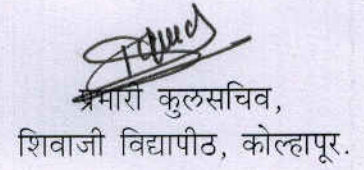 प्रभारी कुलसचिव,
शिवाजी विद्यापीठ, कोल्हापूर.